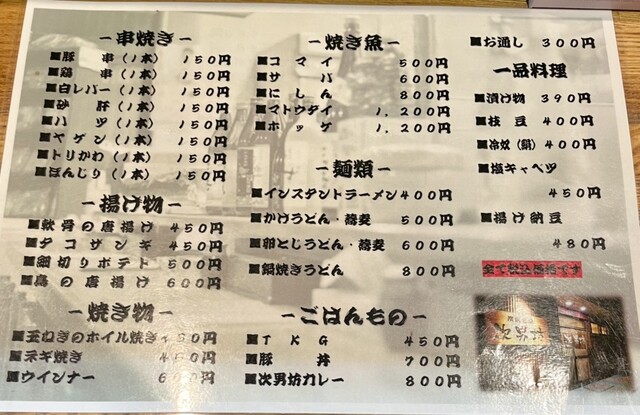 －串焼き－
■豚 串（1本） 150円
■鶏 串（1本） 150円
■白レバー（1本） 150円
■砂 肝（1本） 150円
■ハ ツ（1本） 150円
■ヤゲン（1本） 150円
■トリかわ（1本） 150円
■ぼんじり（1本） 150円
－揚げ物－
■軟骨の唐揚げ 450円
■タコザンギ 450円
■細切りポテト 500円
■鳥の唐揚げ 600円
－焼き物－
■玉ねぎのホイル焼き 450円
■ネギ焼き 450円
■ウインナー 600円
－焼き魚－
■コマイ 500円
■サバ 600円
■にしん 800円
■マトウダイ 1,200円
■ホッケ 1,200円
－麺類－
■インスタントラーメン 400円
■かけうどん・蕎麦 500円
■卵とじうどん・蕎麦 600円
■鍋焼きうどん 800円
－ごはんもの－
■TKG 450円
■豚 丼 700円
■次男坊カレー 800円
■お通し 300円
一品料理
■漬け物 390円
■枝豆 400円
■冷奴（絹） 400円
■塩キャベツ
450円
■揚げ納豆
480円
全て税込価格です
次男坊